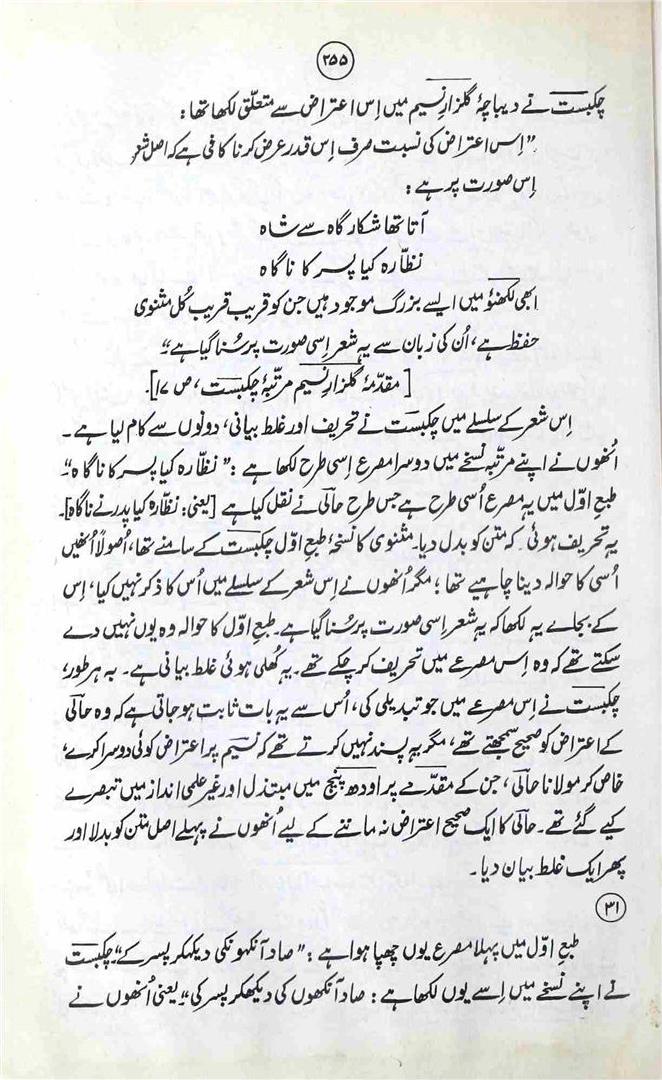 ۲۵۵
چکبست نے دیباچۂ گلزارِ نسیم میں اِس اعتراض سے متعلّق لکھا تھا :
”اِس اعتراض کی نسبت صرف اِس قدر عرض کرنا کافی ہے کہ اصل شعر
اِس صورت پر ہے :
آتا تھا شکار گاہ سے شاہ
نظّارہ کیا پسر کا ناگاہ
ابھی لکھنؤ میں ایسے بزرگ موجود ہیں جن کو قریب قریب کُل مثنوی
حفظ ہے، اُن کی زبان سے یہ شعر اِسی صورت پر سُنا گیا ہے“۔
[ مقدّمۂ گلزارِ نسیم مرتّبۂ چکبست ، ص ۱۷ ]۔
اِس شعر کے سلسلے میں چکبست نے تحریف اور غلط بیانی، دونوں سے کام لیا ہے ۔
اُنھوں نے اپنے مرتّبہ نسخے میں دوسرا مصرع اِسی طرح لکھا ہے : ”نظّارہ کیا پسر کا ناگاہ“۔
طبعِ اوّل میں یہ مصرع اُسی طرح ہے جس طرح حالی نے نقل کیا ہے [یعنی: نظّارہ کیا پدر نے ناگاہ]۔
یہ تحریف ہوئی ، کہ متن کو بدل دیا۔ مثنوی کا نسخۂ طبعِ اوّل چکبست کے سامنے تھا، اُصولاً اُنھیں
اُسی کا حوالہ دینا چاہیے تھا ؛ مگر اُنھوں نے اِس شعر کے سلسلے میں اُس کا ذکر نہیں کیا، اِس
کے بجاے یہ لکھا کہ یہ شعر اِسی صورت پر سُنا گیا ہے۔ طبعِ اوّل کا حوالہ وہ یوں نہیں دے
سکتے تھے کہ وہ اِس مصرعے میں تحریف کر چکے تھے۔ یہ کھلی ہوئی غلط بیانی ہے۔ بہ ہر طور،
چکبست نے اِس مصرعے میں جو تبدیلی کی، اُس سے یہ بات ثابت ہو جاتی ہے کہ وہ حالی
کے اعتراض کو صحیح سمجھتے تھے، مگر یہ پسند نہیں کرتے تھے کہ نسیم پر اعتراض کوئی دوسرا کرے؛
خاص کر مولانا حالی ، جن کے مقدّمے پر اودھ پنچ میں مبتذل اور غیر علمی انداز میں تبصرے
کیے گئے تھے۔ حالی کا ایک صحیح اعتراض نہ ماننے کے لیے اُنھوں نے پہلے اصل متن کو بدلا اور
پھر ایک غلط بیان دیا ۔
۳۱
طبعِ اوّل میں پہلا مصرع یوں چھپا ہوا ہے : ”صاد آنکھونکی دیکھکر پسر کے“ چکبست
نے اپنے نسخے میں اِسے یوں لکھا ہے : صاد آنکھوں کی دیکھ کر پسر کی“ یعنی اُنھوں نے